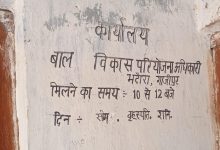 कार्यालय
बाल विकास परियोजना अधिकारी
भदौरा, गाजीपुर
मिलने का समय :- 10 से 12 बजे
दिन :- सोम. वृहस्पति. शनि.